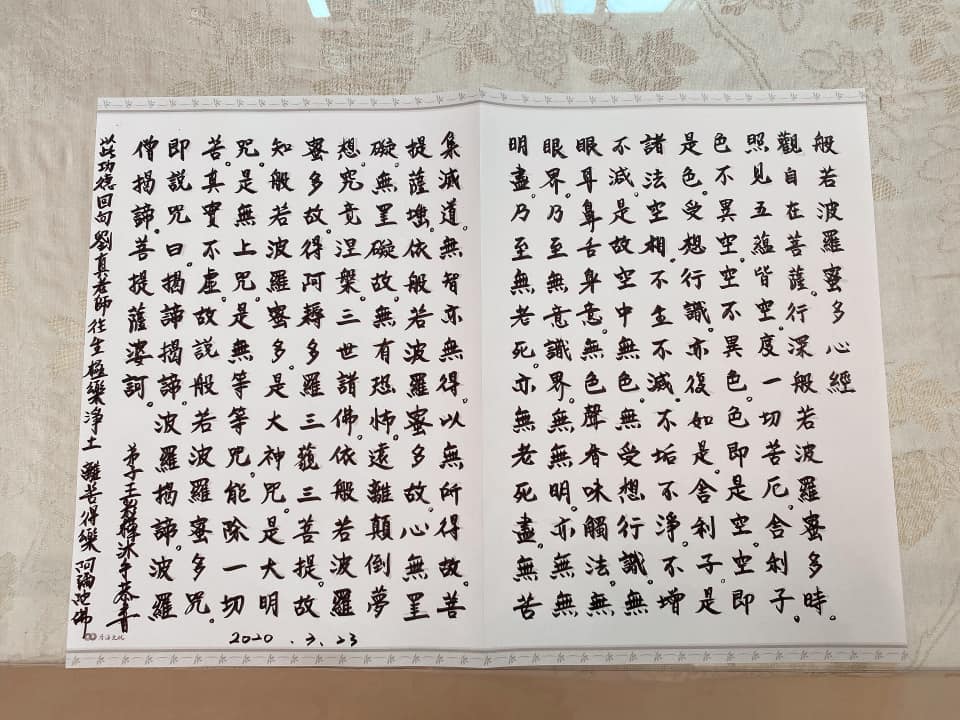 般若波羅蜜多心經
觀自在菩薩。行深般若波羅蜜多時。
照見五蘊皆空。度一切苦厄。舍利子。
色不異空。空不異色。色即是空。空即
是色。受想行識。亦復如是。舍利子是
諸法空相。不生不滅。不垢不淨。不增
不減。是故空中無色。無受想行識。無
眼耳鼻舌身意。無色聲香味觸法。無
眼界。乃至無意識界。無無明。亦無無
明盡。乃至無老死。亦無老死盡。無苦
集滅道。無智亦無得。以無所得故。菩
提薩埵。依般若波羅蜜多故。心無罣
礙。無罣礙故。無有恐怖。遠離顛倒夢
想。究竟涅槃。三世諸佛。依般若波羅
蜜多故。得阿耨多羅三藐三菩提。故
知般若波羅蜜多。是大神咒。是大明
咒。是無上咒。是無等等咒。能除一切
苦。真實不虛。故說般若波羅蜜多咒。
即說咒曰。揭諦揭諦。波羅揭諦。波羅
僧揭諦。菩提薩婆訶。
弟子王沐手恭書
茲功德回向劉真老師往生極樂淨土 離苦得樂 阿彌陀佛
2020.3.23